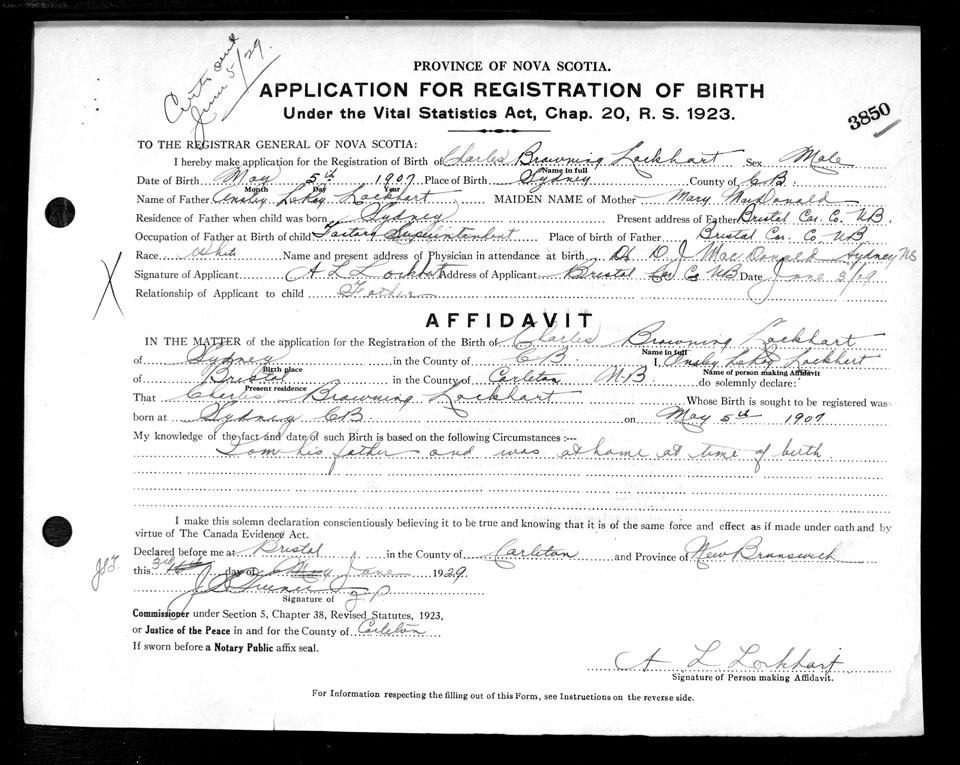 Certs sent
June 5/29.
PROVINCE OF NOVA SCOTIA.
APPLICATION FOR REGISTRATION OF BIRTH
Under the Vital Statistics Act, Chap. 20, R. S. 1923.
3850
TO THE REGISTRAR GENERAL OF NOVA SCOTIA:
I hereby make application for the Registration of Birth of Charles Browning Lockhart Sex Male
Name in full
Date of Birth May 5th 1907 Place of Birth Sydney County of C B.
Month Day Year
Name of Father Ansley LeRoy Lockhart MAIDEN NAME of Mother Mary MacDonald
Residence of Father when child was born Sydney Present address of Father Bristol Car. Co. NB.
Occupation of Father at Birth of child Factory Superintendent Place of birth of Father Bristol Car. Co. NB
Race White Name and present address of Physician in attendance at birth Dr D. J MacDonald Sydney NS
Signature of Applicant A L Lockhart Address of Applicant Bristol Car Co NB Date June 3/29
Relationship of Applicant to child Father
X
AFFIDAVIT
IN THE MATTER of the application for the Registration of the Birth of Charles Browning Lockhart
Name in full
of Sydney in the County of C B. I, Ansley LeRoy Lockhart
Birth place Name of person making Affidavit
of Bristol in the County of Carleton N.B. do solemnly declare:
Present residence
That Charles Browning Lockhart Whose Birth is sought to be registered was
born at Sydney CB. on May 5th 1907
My knowledge of the fact and date of such Birth is based on the following Circumstances :---
I am his father and was at home at time of birth.
I make this solemn declaration conscientiously believing it to be true and knowing that it is of the same force and effect as if made under oath and by
virtue of The Canada Evidence Act.
Declared before me at Bristol in the County of Carleton and Province of New Brunswick
this 3rd day of May June 1929.
Signature of J P
Commissioner under Section 5, Chapter 38, Revised Statutes, 1923,
or Justice of the Peace in and for the County of Carleton
If sworn before a Notary Public affix seal.
A L Lockhart
Signature of Person making Affidavit.
For Information respecting the filling out of this Form, see Instructions on the reverse side.